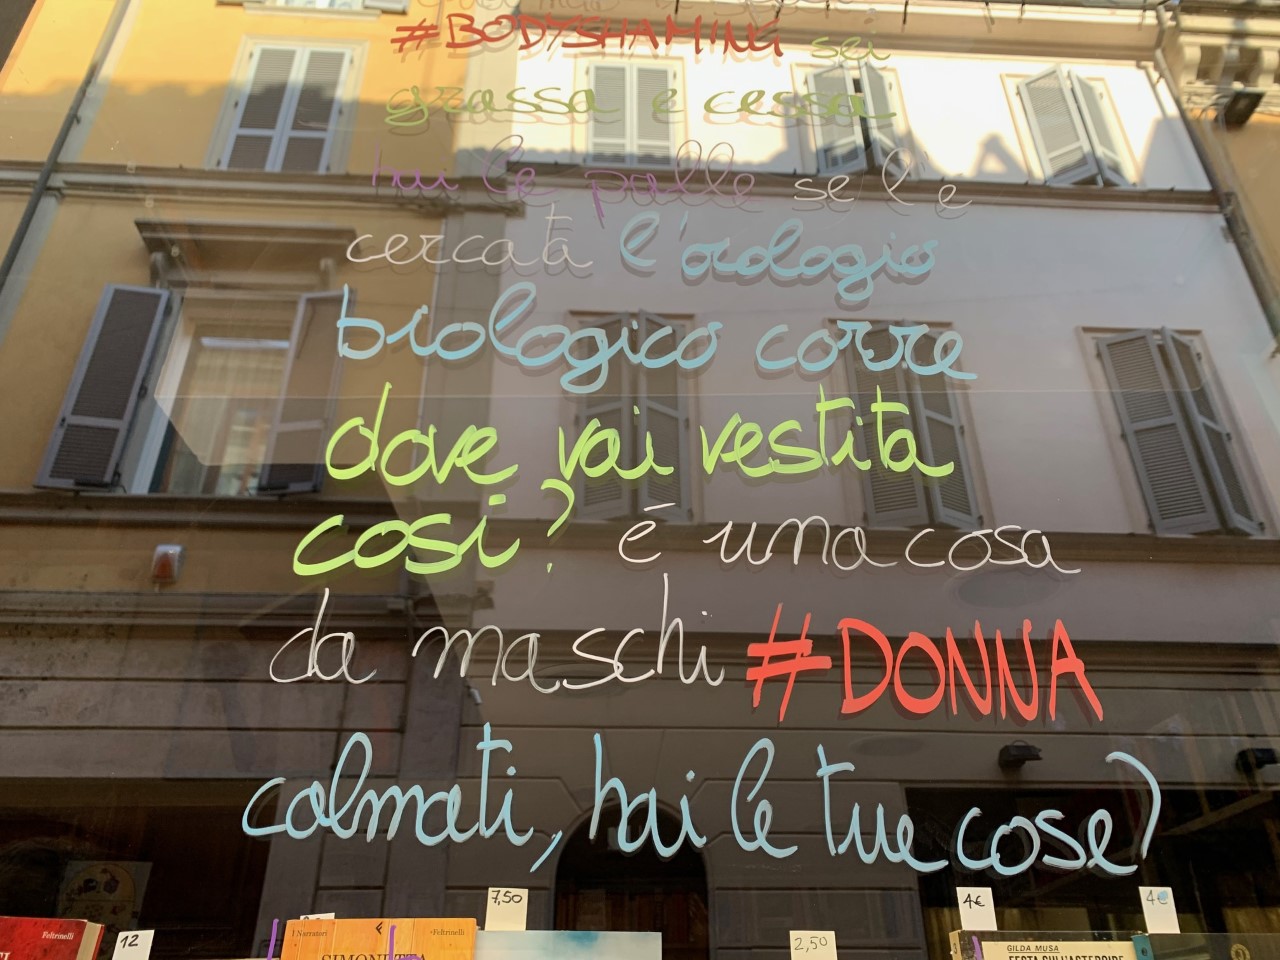 #BODYSHAMING sei
grassa e cessa
hai le palle se l'è
cercata l'orologio
biologico corre
dove vai vestita
così? è una cosa
da maschi #DONNA
calmati, hai le tue cose?
7,50
4€
4€
12
2,50
Feltrinelli
I Narratori
Feltrinelli
GILDA MUSA